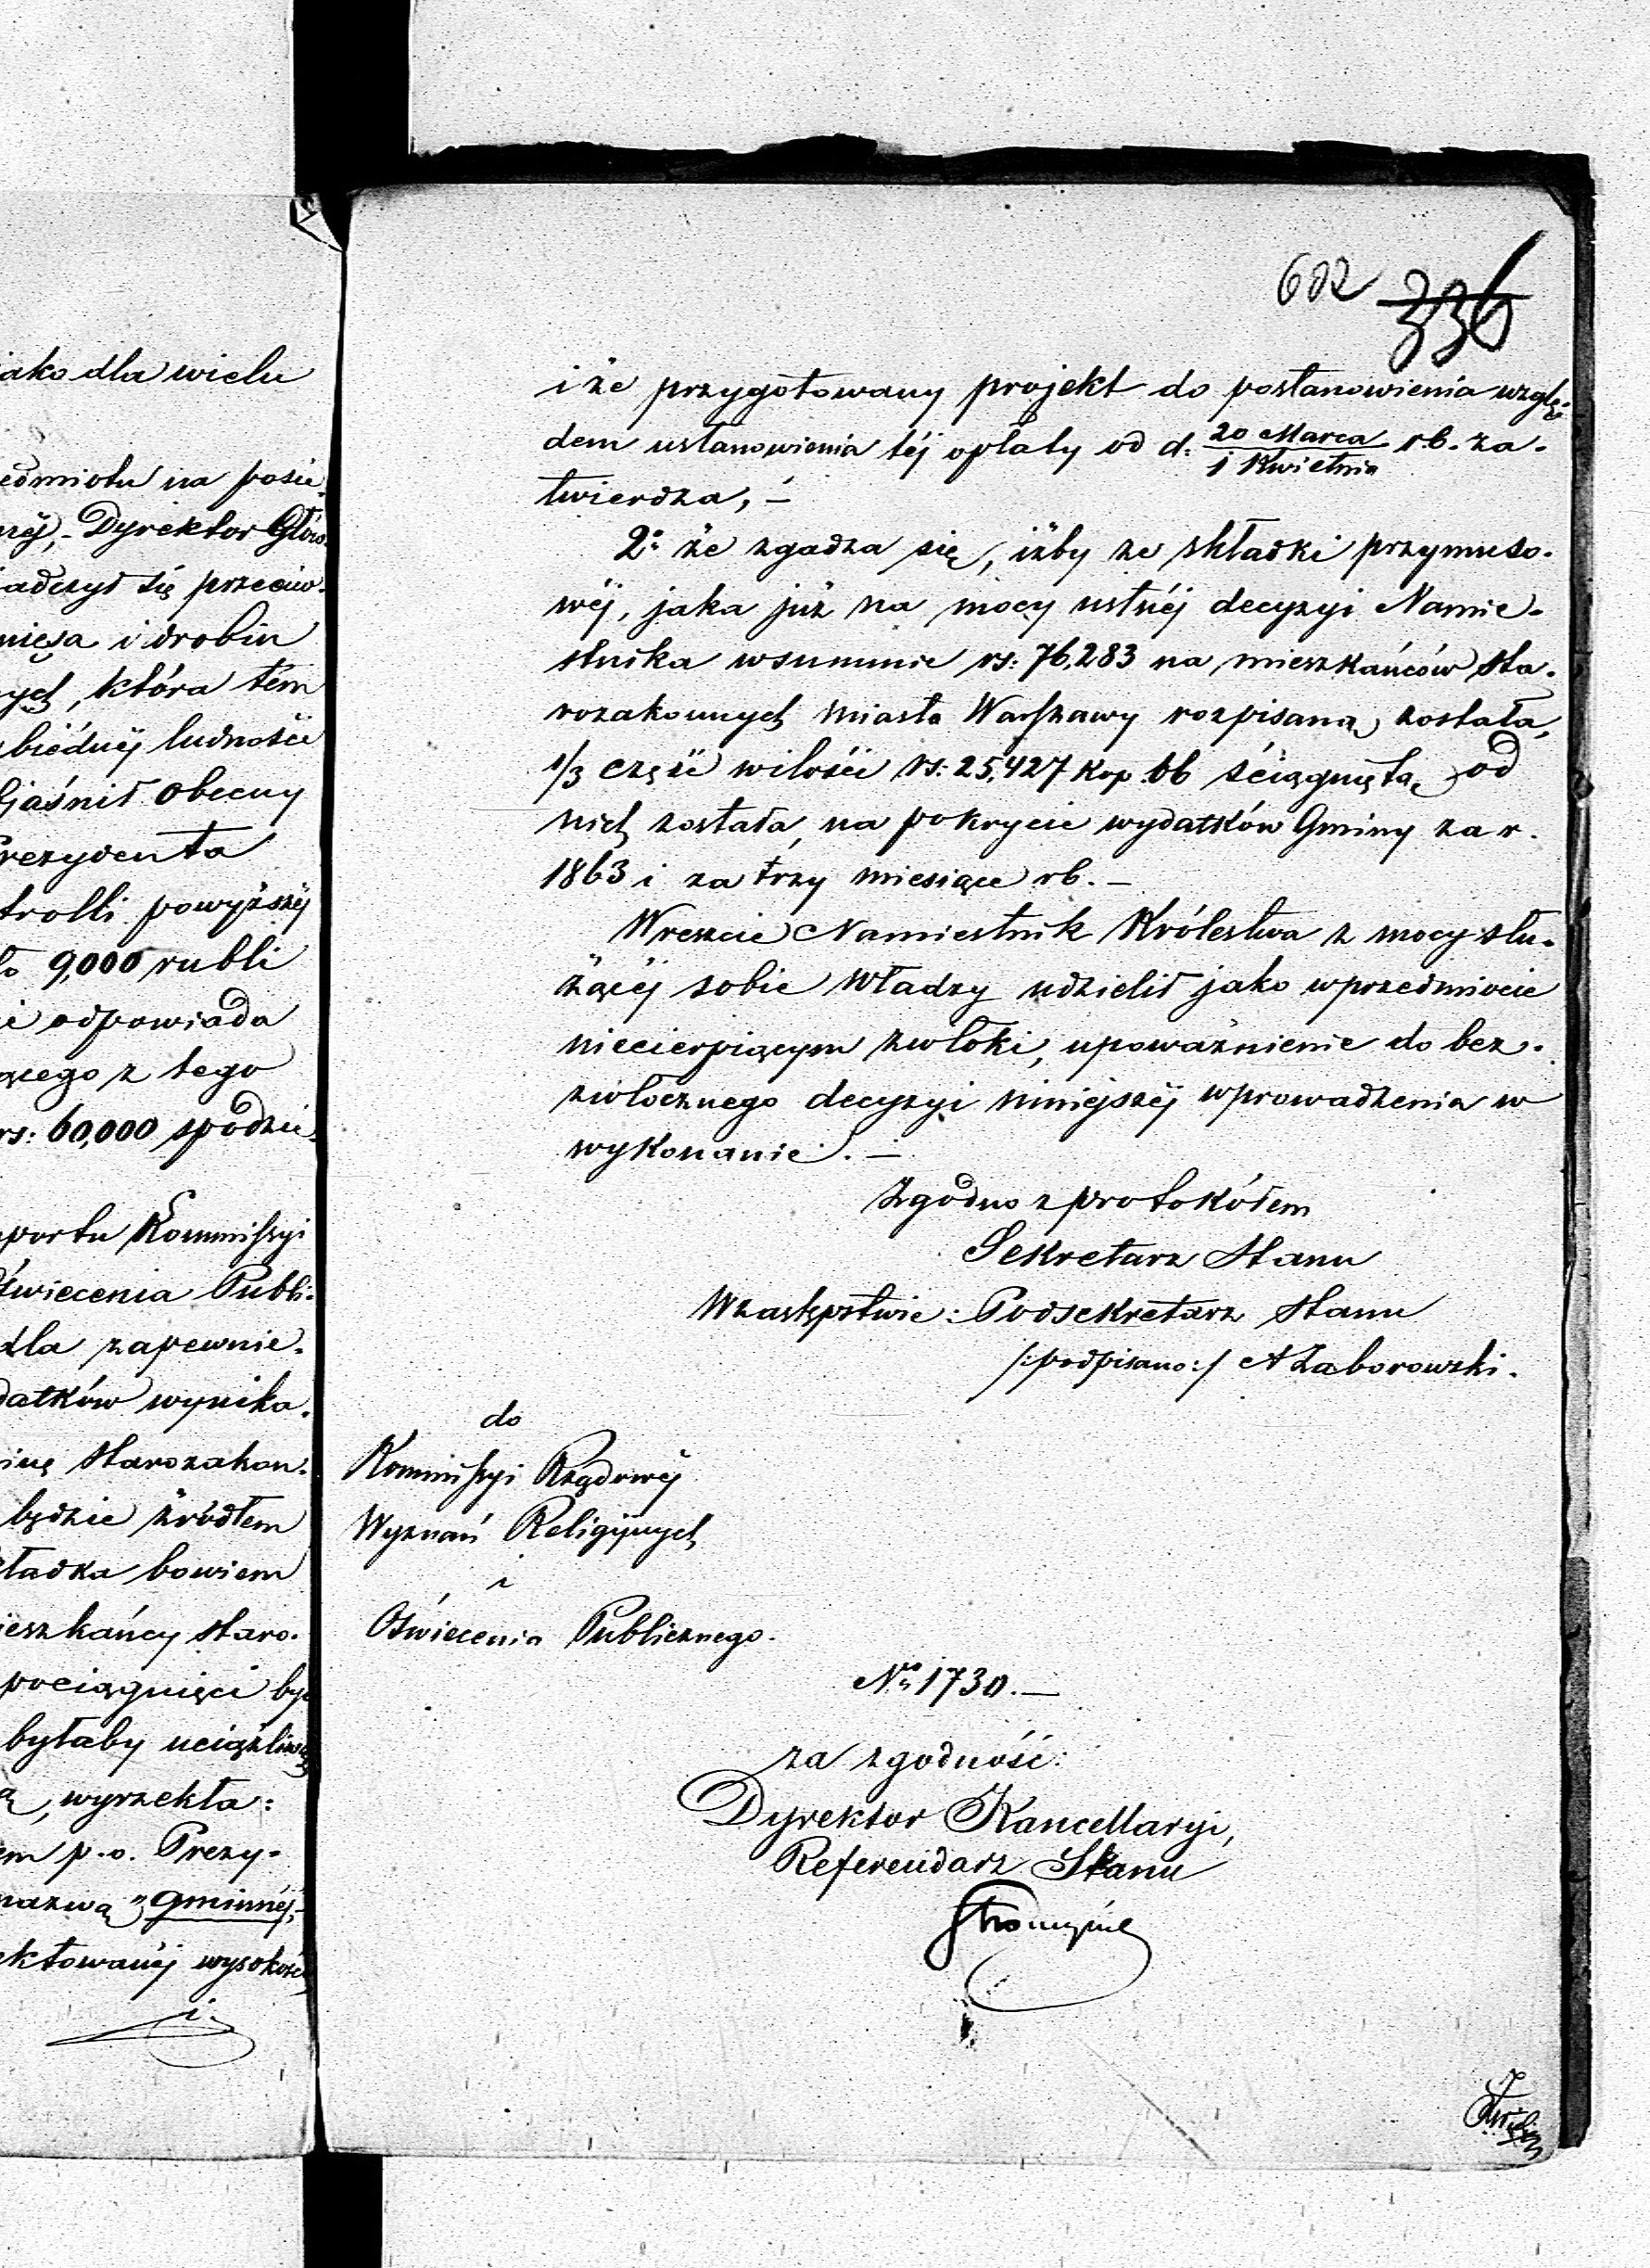 ako dla wielu
edmiotu na posie
néj, - Dyrektor Głów.
adczył się przeciw.
mięsa i drobiu
ych, która tém
biédnéj ludności
jaśnił obecny
rezydenta
trolli powyższéj
to 9,000 rubli
ie odpowiada
ącego z tego
rs: 60,000 spodzie.
portu Kommissyi
świecenia Publi.
dla zapewnie.
datków wynika.
inę starozakon.
będzie źródłem
kładka bowiem
ieszkańcy staro.
pociągnięci być
byłaby uciążliwą
ą, wyrzekła:
em p.o. Prezy-
nazwą "gminnéj,"
ektowanéj wysokości
i
602 336
i że przygotowany projekt do postanowienia wzglę-
dem ustanowienia téj opłaty od d: 20 Marca / 1 Kwietnia r.b. za-
twierdza, –
2o że zgadza się, iżby ze składki przymuso-
wéj, jaka już na mocy ustnéj decyzyi Namie-
stnika wsummie rs: 76,283 na mieszkańców sta-
rozakonnych miasta Warszawy rozpisaną została,
1/3 część wilości rs: 25,427 kop. 66 ściągniętą od
nich została, na pokrycie wydatków Gminy za r.
1863 i za trzy miesiące rb. –
Wreszcie Namiestnik Królestwa z mocy słu-
żącéj sobie Władzy udzielił jako wprzedmiocie
niecierpiącym zwłoki, upoważnienie do bez-
zwłocznego decyzyi niniejszéj wprowadzenia w
wykonanie. –
Zgodno z protokółem
Sekretarz Stanu
Wzastępstwie: Podsekretarz Stanu
/:podpisano:/ A Zaborowski.
do
Kommissyi Rządowéj
Wyznań Religijnych
i
Oświecenia Publicznego.
No 1730. –
za zgodność:
Dyrektor Kancellaryi,
Referendarz Stanu